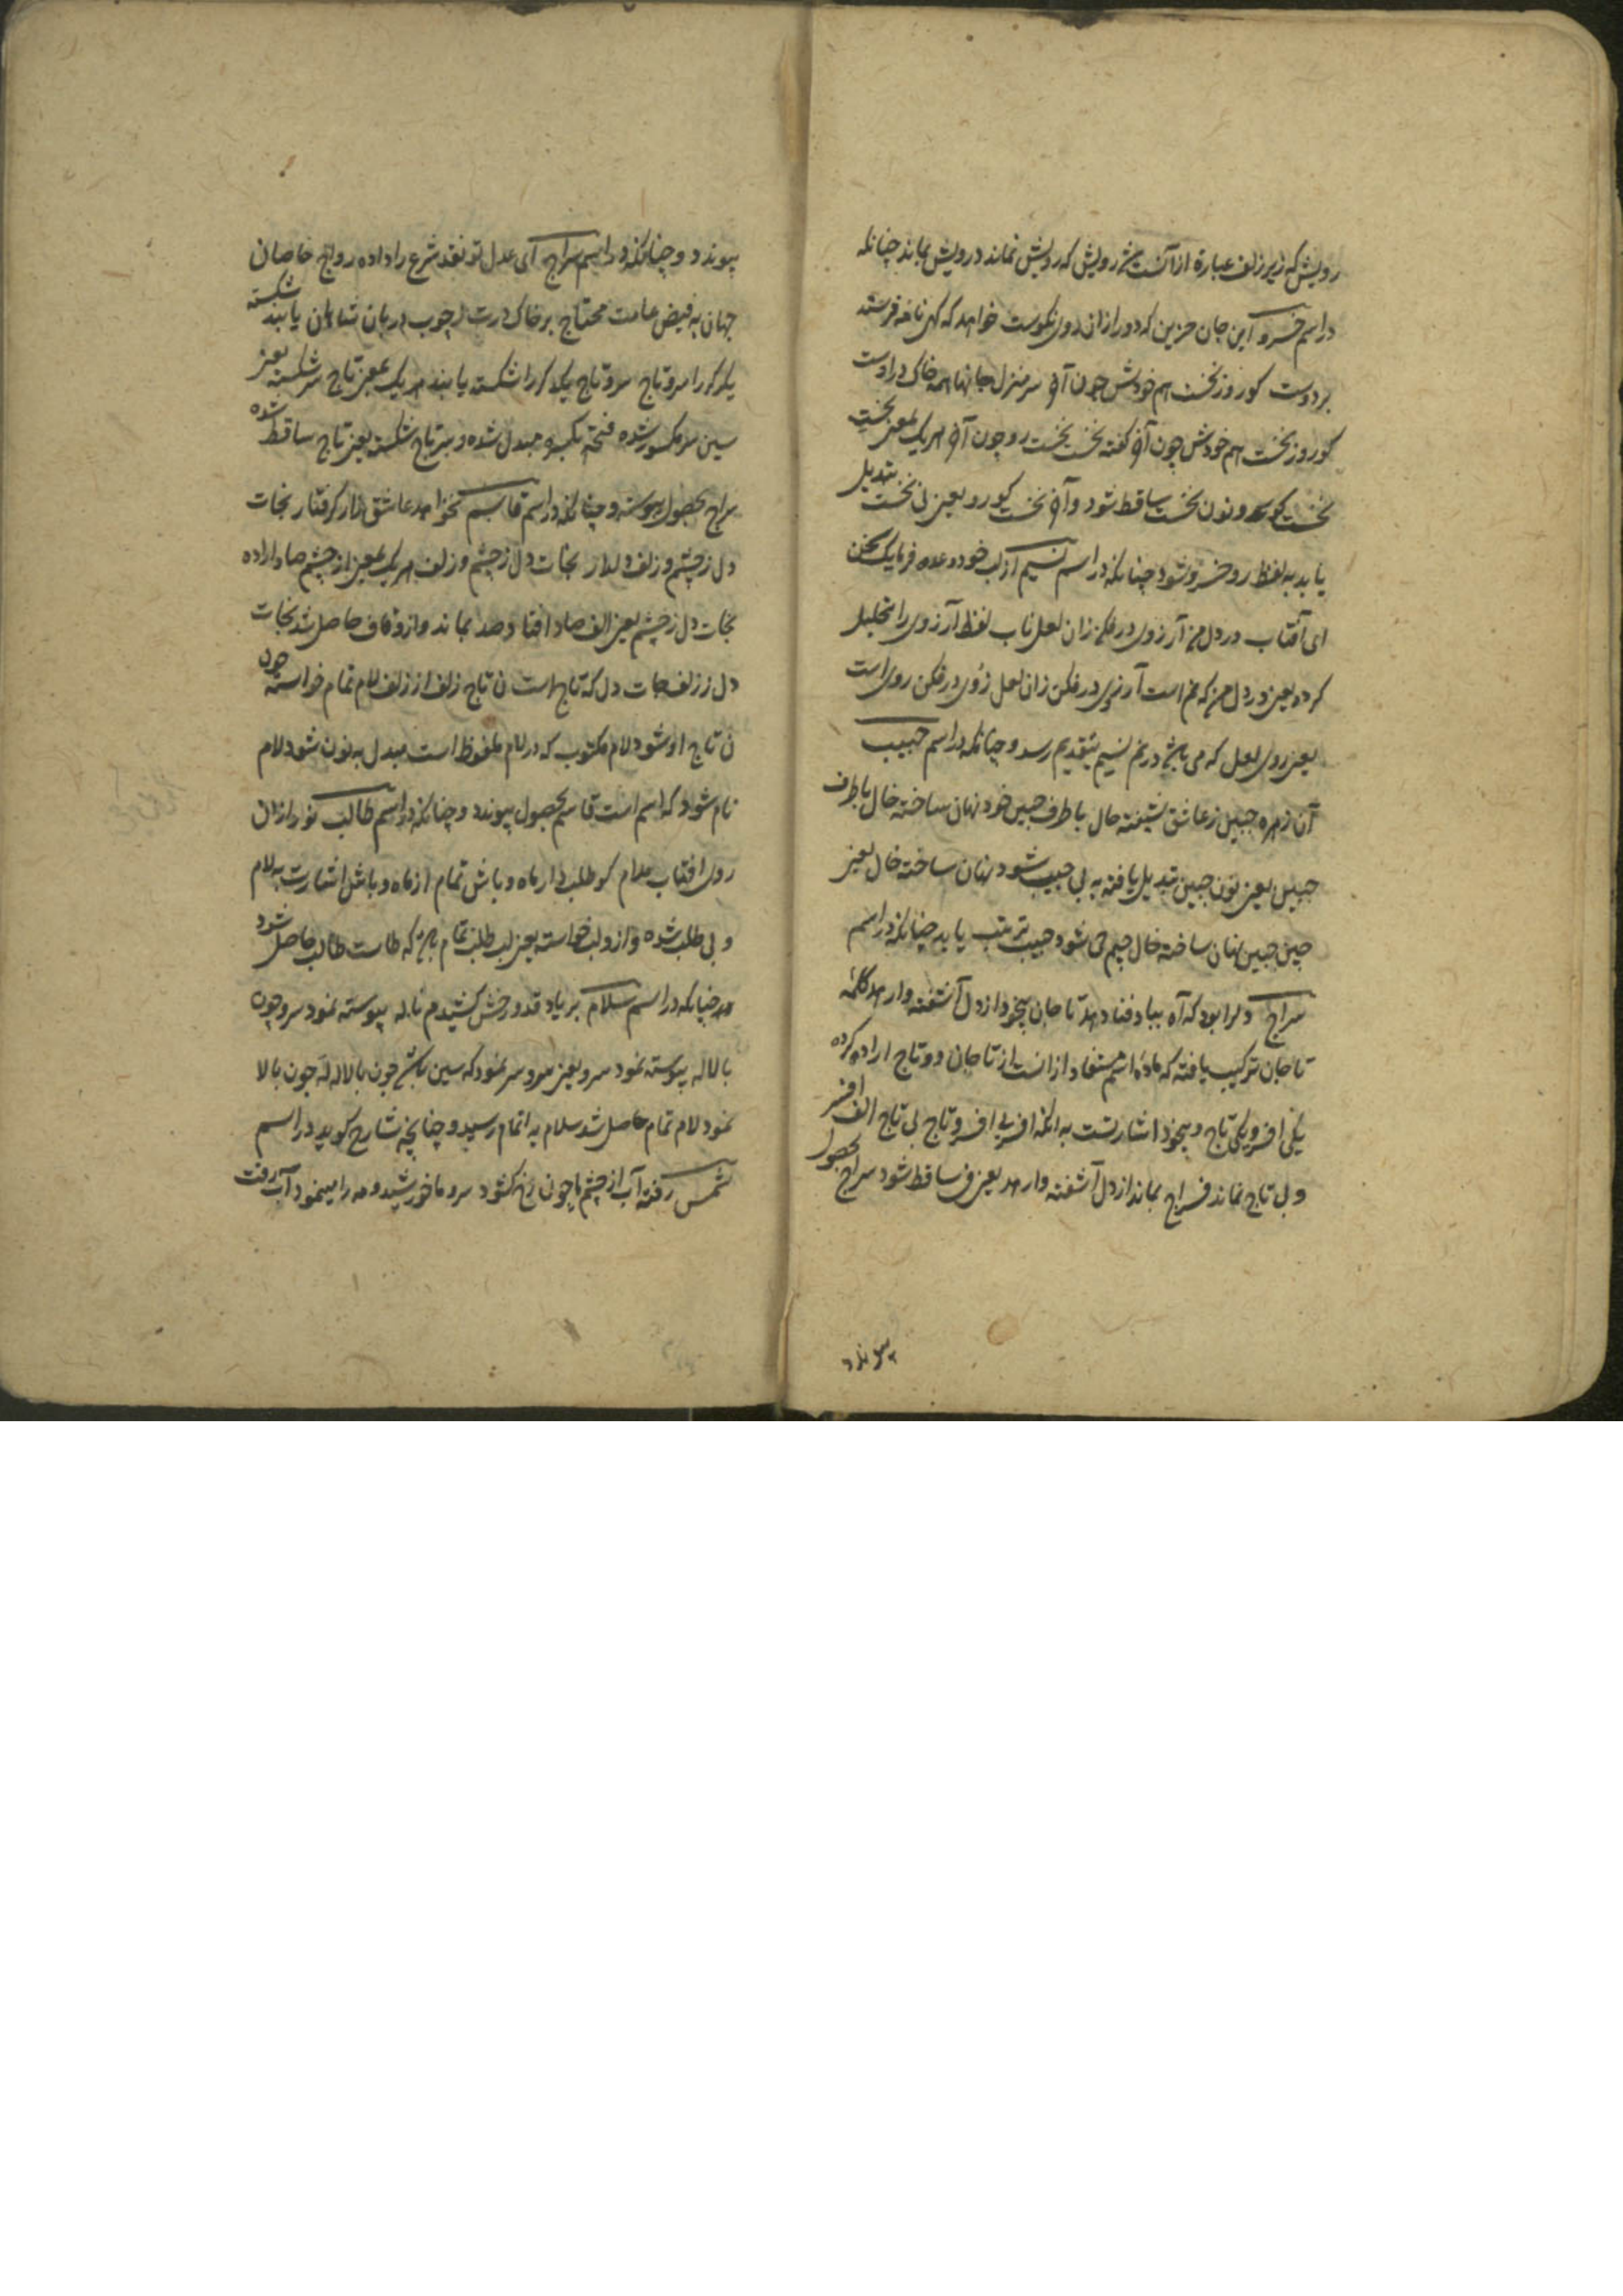 رویش که زیر زلف عبارة از آنست یعنی رویش که رویش نماند درویش بماند چنانکه
در اسم خسرو این جان حزین که دور ازان روی نکوست خواهد که کهی نامه فرستد
بردوست کوروز نخست هم خودش چون آن سرمنزل جانها همه خاک در اوست
کوروز نخست هم خودش چون آن گفته نخست نخست رو چون آن هریک بمعنی نخست
نخست کوی ونون نخست ساقط شود وآن نخست کورو یعنی نخست تبدیل
یابد به لفظ رو خسرو شود چنانکه در اسم نسیم از لب خود وعده فرما یک سخن
ای آفتاب در دل من آرزوی در فکن زان لعل ناب لفظ آرزوی را تحلیل
کرده یعنی در دل من که من است آرزوی در فکن زان لعل زوی در فکن روی است
یعنی روی لعل که می باشد در نم نسیم بتقدیم رسد و چنانکه در اسم حبیب
آن زهره جبین ز عاشق شیفته حال با طرف جبین خود نهان ساخته خال با طرف
جبین یعنی نون جبین تبدیل یافته به بی جبیب شود نهان ساخته خال یعنی
جیم جبین نهان ساخته خال جیم حی شود حبیب ترتیب یابد چنانکه در اسم
سراج دلرا بود که آه بباد فنا دهد تا جان بیخود از دل آشفته وارهد کلمهٔ
تاجان ترکیب یافته که مادهٔ اسم مستفاد ازانست از تاجان دو تاج اراده کرده
یکی افسر ویکی تاج و بیخود اشارتست به آنکه افسر بی افسر و تاج بی تاج الف افسر
و بی تاج نماند فسراج بماند از دل آشفته وارهد یعنی ف ساقط شود سراج بحصول
پیوندد
پیوندد و چنانکه در اسم سراج ای عدل تو نقد شرع را داده رواج خاصان
جهان به فیض عامت محتاج بر خاک درت ز چوب دربان شاهان یابند شکسته
یکدکر را سروتاج سروتاج یکدکر را شکسته یابند هریک بمعنی تاج سرشکسته یعنی
سین سر مکسور شده فتحه بکسره مبدل شده و سرتاج شکسته یعنی تاج ساقط شده
سراج بحصول پیوسته و چنانکه در اسم قاسم نخواهد عاشق زار کرفتار نجات
دل ز چشم و زلف دلدار نجات دل ز چشم و زلف هریک بمعنی از چشم صاد اراده
نجات دل ز چشم یعنی الف صاد افتاد صد بماند و ازو قاف حاصل شد نجات
دل ز زلف نجات دل که تاج است ن تاج زلف از زلف لام تمام خواسته چون
ن تاج او شود لام مکتوب که در لام ملفوظ است مبدل به نون شود لام
نام شود که اسم است قاسم بحصول پیوندد و چنانکه در اسم طالب نور ازان
روی آفتاب مدام کو طلب دار ماه و باش تمام از ماه و باش اشارت به لام
و بی طلب شده و ازو لب خواسته یعنی لب طلب تمام که طاست طالب حاصل شود
چنانکه در اسم سلام بریاد قد و رخش کشیدم ناله پیوسته نمود سرو چون
بالاله پیوسته نمود سرو یعنی سرو سر نمود که سین باشد چون بالاله لَه چون بالا
نمود لام تمام حاصل شد سلام به اتمام رسید و چنانچه شارح کوید در اسم
شمس رفته آب از چشم ما چون رخ کشود سرو ما خورشید و مه را مینمود آب رفت